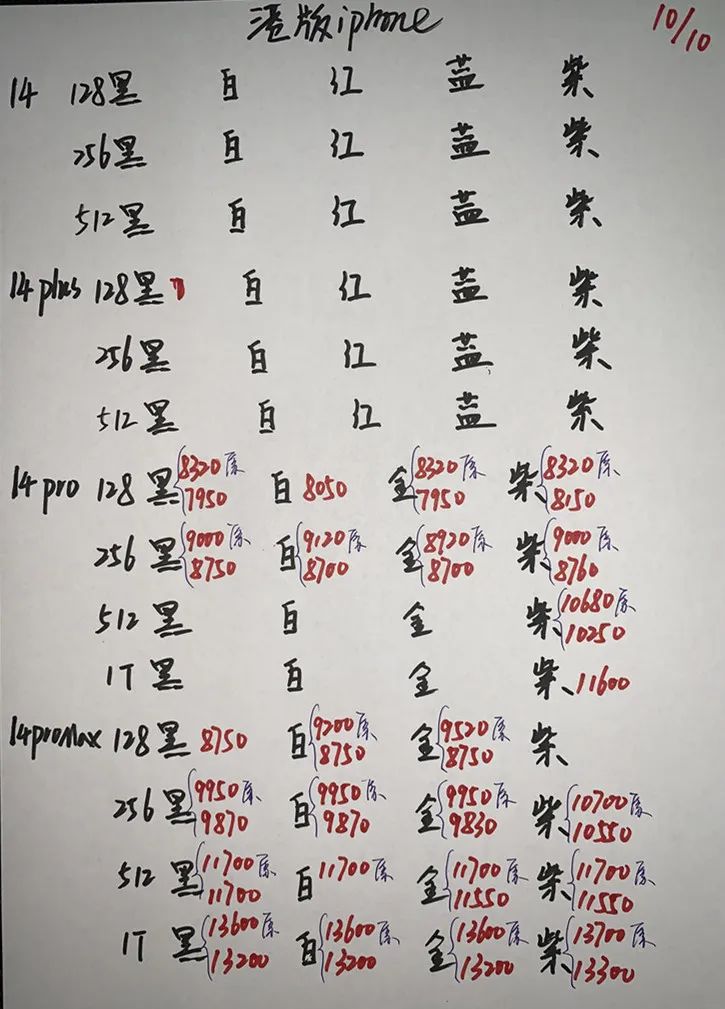 港版iphone 10/10
14 128黑 白 红 蓝 紫
256黑 白 红 蓝 紫
512黑 白 红 蓝 紫
14plus 128黑 白 红 蓝 紫
256黑 白 红 蓝 紫
512黑 白 红 蓝 紫
14pro 128 黑 8320原 7950 白 8050 金 8320原 7950 紫 8320原 8150
256 黑 9000原 8750 白 9120原 8700 金 8920原 8700 紫 9000原 8760
512 黑 白 金 紫 10680原 10250
1T 黑 白 金 紫 11600
14proMax 128 黑 8750 白 9200原 8750 金 9520原 8750 紫
256 黑 9950原 9870 白 9950原 9870 金 9950原 9830 紫 10700原 10550
512 黑 11700原 11700 白 11700原 金 11700原 11550 紫 11700原 11550
1T 黑 13600原 13200 白 13600原 13200 金 13600原 13200 紫 13700原 13300